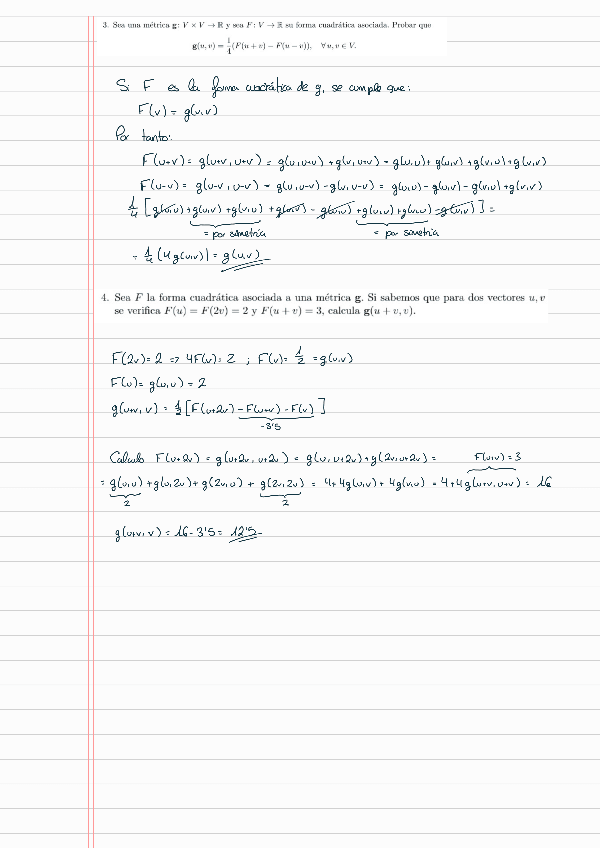 3. Sea una métrica g: V × V → ℝ y sea F: V → ℝ su forma cuadrática asociada. Probar que
g(u, v) = 1/4 (F(u + v) − F(u − v)), ∀u, v ∈ V.
Si F es la forma cuadrática de g, se cumple que:
F(v) = g(v,v)
Por tanto:
F(u+v) = g(u+v, u+v) = g(u, u+v) + g(v, u+v) = g(u,u) + g(u,v) + g(v,u) + g(v,v)
F(u-v) = g(u-v, u-v) = g(u, u-v) - g(v, u-v) = g(u,u) - g(u,v) - g(v,u) + g(v,v)
1/4 [g(u,u) + g(u,v) + g(v,u) + g(v,v) - g(u,u) + g(u,v) + g(v,u) - g(v,v)] =
= por simetría = por simetría
= 1/4 (4g(u,v)) = g(u,v)
4. Sea F la forma cuadrática asociada a una métrica g. Si sabemos que para dos vectores u, v
se verifica F(u) = F(2v) = 2 y F(u + v) = 3, calcula g(u + v, v).
F(2v) = 2 => 4F(v) = 2 ; F(v) = 1/2 = g(v,v)
F(u) = g(u,u) = 2
g(u+v, v) = 1/2 [F(u+2v) - F(u+v) - F(v)]
-3'5
Calculo F(u+2v) = g(u+2v, u+2v) = g(u, u+2v) + g(2v, u+2v) = F(u,v) = 3
= g(u,u) + g(u,2v) + g(2v,u) + g(2v,2v) = 4+4g(u,v) + 4g(v,u) = 4+4g(u+v, u+v) = 16
2 2
g(u+v, v) = 16 - 3'5 = 12'5